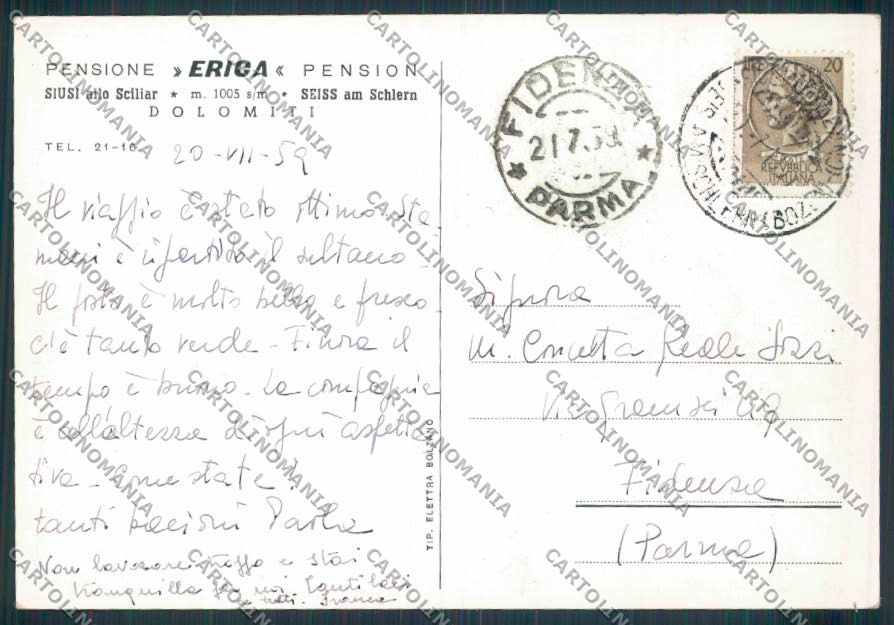 PENSIONE » ERICA « PENSION
SIUSI allo Sciliar * m. 1005 s/m * SEISS am Schlern
DOLOMITI
TEL. 21-16
20-VII-59
Il viaggio è stato ottimo. Sta
mani è ripartito il sultano.
Il posto è molto bello e fresco
c'è tanto verde - Finora il
tempo è buono. La compagnia
è all'altezza di ogni aspetta
tiva - Come state?
tanti bacioni Paola
Non lavorare troppo e stai
tranquilla per noi
tutti. Franca
TIP. ELETTRA BOLZANO
FIDENZA
21.7.59
* PARMA *
LIRE 20
POSTE
REPVBBLICA
ITALIANA
Signora
M. Concetta Reale
Via Gramsci
Fidenza
(Parma)
CARTOLINOMANIA